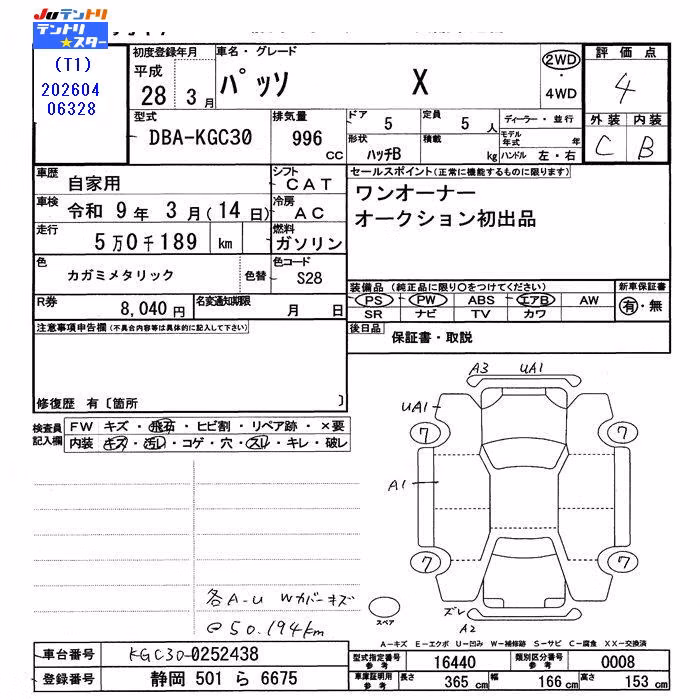 JUテントリ
テントリ
★スター
(T1)
202604
06328
初度登録年月
平成
28 3 月
車名・グレード
パッソ X
2WD
・
4WD
評価点
4
外装 内装
C B
型式
DBA-KGC30
排気量
996 cc
ドア
5
定員
5 人
形状
ハッチB
積載
kg
ディーラー・並行
モデル年式 年
ハンドル 左・右
車歴
自家用
シフト
CAT
車検 令和 9 年 3 月(14 日)
冷房
AC
走行
5 万 0 千 189 km
燃料
ガソリン
色
カガミメタリック
色替
色コード
S28
R券
8,040 円
名変通知期限
月 日
セールスポイント(正常に機能するものに限ります)
ワンオーナー
オークション初出品
装備品 (純正品に限り○をつけてください)
PS PW ABS エアB AW
SR ナビ TV カワ
新車保証書
有・無
後日品
保証書・取説
注意事項申告欄(不具合内容等は具体的に記入して下さい)
修復歴 有〔箇所 〕
検査員
記入欄
FW キズ・飛石・ヒビ割・リペア跡・×要
内装 キズ・汚れ・コゲ・穴・スレ・キレ・破レ
A3 UA1
UA1
7 7
A1
7 7
ズレ
A2
スペア
各A-U Wカバーキズ
@50.194km
A-キズ E-エクボ U-凹み W-補修跡 S-サビ C-腐食 XX-交換済
車台番号
KGC30-0252438
登録番号
静岡 501 ら 6675
型式指定番号
参考
16440
類別区分番号
参考
0008
車庫証明用
参考
長さ
365 cm
幅
166 cm
高さ
153 cm